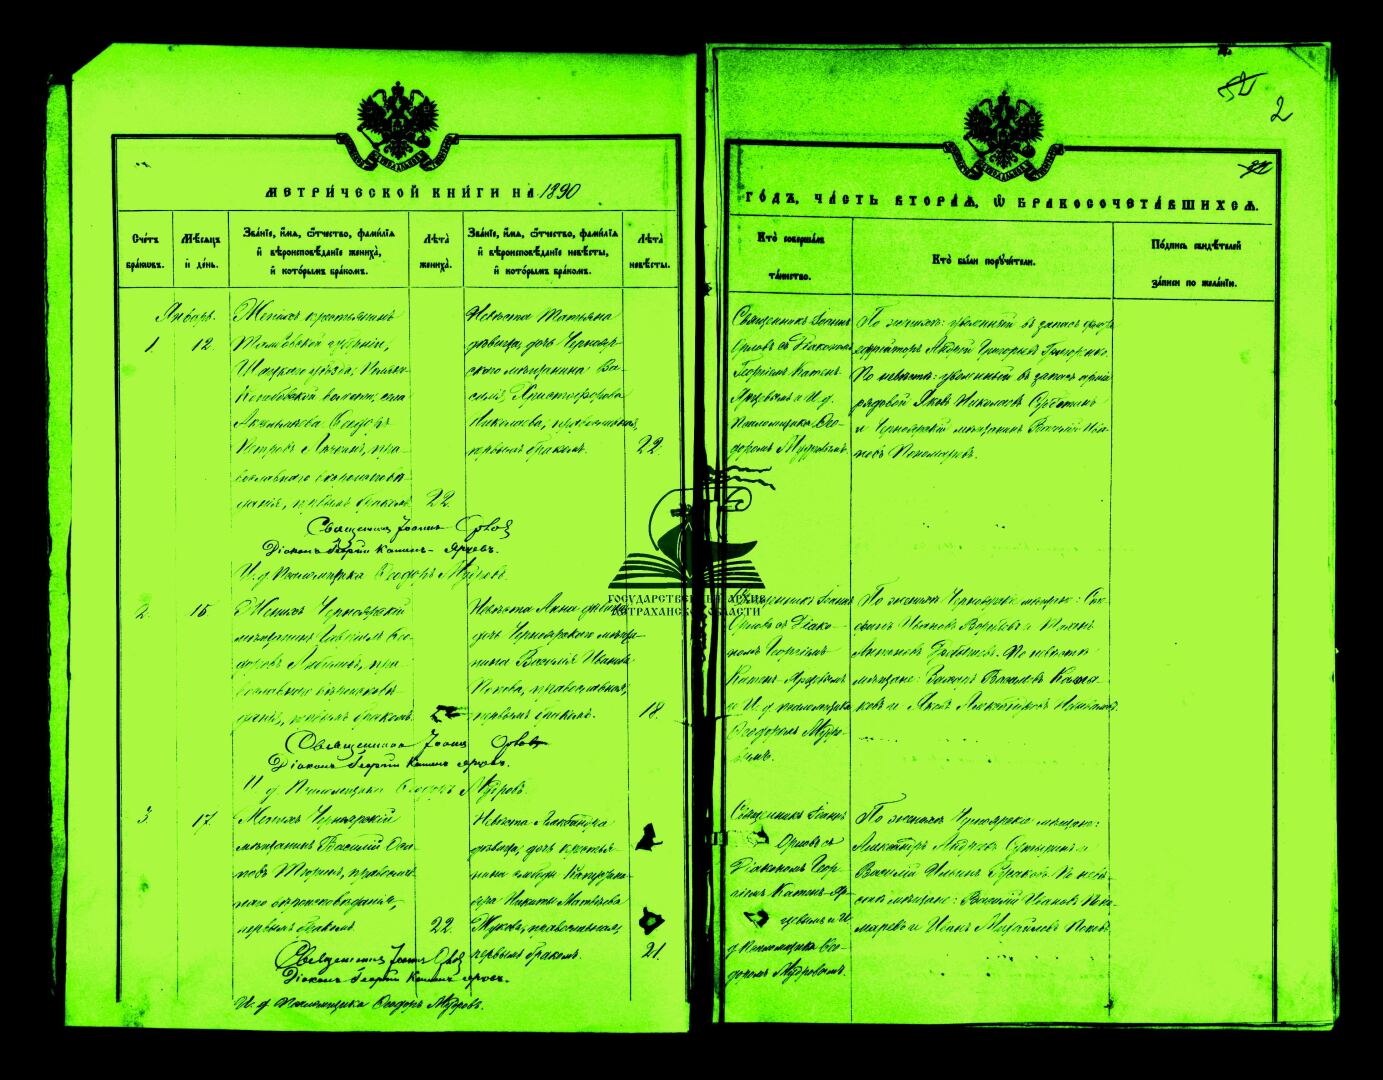 2
МЕТРИЧЕСКОЙ КНИГИ НА 1890
ГОДЪ, ЧАСТЬ ВТОРАЯ, Ѿ БРАКОСОЧЕТАВШИХСЯ.
Счетъ браковъ.
Мѣсяцъ и день.
Званіе, имя, отчество, фамилія и вѣроисповѣданіе жениха, и которымъ бракомъ.
Лѣта жениха.
Званіе, имя, отчество, фамилія и вѣроисповѣданіе невѣсты, и которымъ бракомъ.
Лѣта невѣсты.
Кто совершалъ таинство.
Кто были поручители.
Подпись свидѣтелей записи по желанію.
Январь.
1.
12.
Женихъ крестьянинъ
Тамбовской губерніи,
Шацкаго уѣзда,
волости, села
Ѳеодоръ
Петровъ пра-
вославнаго вѣроисповѣ-
данія, первымъ бракомъ
22.
Невѣста Татьяна
дѣвица, дочь Чернояр-
скаго мѣщанина Ва-
силія Христофорова
Николаева, православная,
первымъ бракомъ.
22.
Священникъ Іоаннъ
Орловъ съ Діакономъ
Георгіемъ Катен-
Ярцевымъ и И. д.
Псаломщика Ѳео-
доромъ Мудровымъ.
По женихѣ: уволенный въ запасъ
ефрейторъ Андрей Григорьевъ
По невѣстѣ: уволенный въ запасъ арміи
рядовой Яковъ Николаевъ Субботинъ
и Черноярскій мѣщанинъ Василій Ива-
новъ Пономаревъ.
Священникъ Іоаннъ Орловъ
Діаконъ Георгій Катенъ-Ярцевъ.
И. д. Псаломщика Ѳеодоръ Мудровъ.
2.
15.
Женихъ Черноярскій
мѣщанинъ Ѳео-
доровъ пра-
вославнаго вѣроисповѣ-
данія, первымъ бракомъ.
Невѣста Анна дѣвица
дочь Черноярскаго мѣща-
нина Василія Иванова
Попова, православная,
первымъ бракомъ.
18.
Священникъ Іоаннъ
Орловъ съ Діако-
номъ Георгіемъ
Катенъ-Ярцевымъ
и И. д. псаломщика
Ѳеодоромъ Мудро-
вымъ.
По женихѣ Черноярскіе мѣщане:
Ивановъ Воробьевъ и
По невѣстѣ
мѣщане: Захаръ Васильевъ Каша-
ковъ и Яковъ
Священникъ Іоаннъ Орловъ
Діаконъ Георгій Катенъ Ярцевъ.
И д Псаломщика Ѳеодоръ Мудровъ.
3.
17.
Женихъ Черноярскій
мѣщанинъ Василій
православ-
наго вѣроисповѣданія,
первымъ бракомъ.
22.
Невѣста Александра
дѣвица, дочь крестья-
нина слободы
Никиты Матвѣева
Жукова, православная,
первымъ бракомъ.
21.
Священникъ Іоаннъ
Орловъ съ
Діакономъ Геор-
гіемъ Катенъ-Яр-
цевымъ и И.
д Псаломщика Ѳео-
доромъ Мудровымъ.
По женихѣ Черноярскіе мѣщане:
Александръ Андреевъ и
Василій Ильинъ По невѣ-
стѣ мѣщане: Василій Ивановъ Поно-
маревъ и Михайловъ Поповъ
Священникъ Іоаннъ Орловъ
Діаконъ Георгій Катенъ Ярцевъ.
И. д Псаломщика Ѳеодоръ Мудровъ.
ГОСУДАРСТВЕННЫЙ АРХИВ
АСТРАХАНСКОЙ ОБЛАСТИ